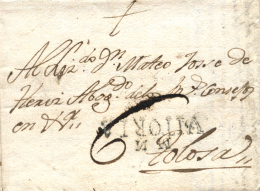 Al Liz.do Dn Mateo Jose de
Hervi Abog.do de los R.s Consejos
en &.a
6
Tolosa